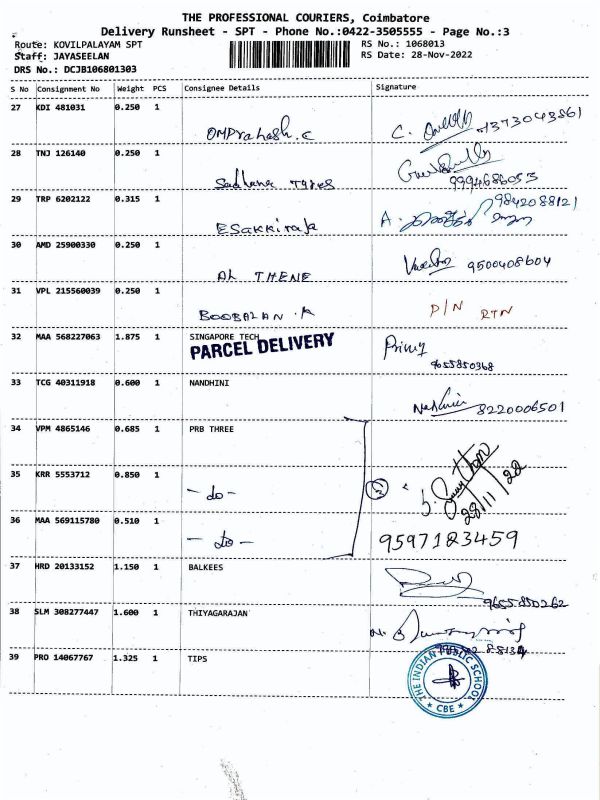 THE PROFESSIONAL COURIERS, Coimbatore
Delivery Runsheet - SPT - Phone No.:0422-3505555 - Page No.:3
Route: KOVILPALAYAM SPT RS No.: 1068013
Staff: JAYASEELAN RS Date: 28-Nov-2022
DRS No.: DCJB106801303
S No Consignment No Weight PCS Consignee Details Signature
27 KDI 481031 0.250 1
OMPrahash.C C.
28 TNJ 126140 0.250 1
Sadhana Tyres 9994686053
29 TRP 6202122 0.315 1 9842088121
Esakkiraja A.
30 AMD 25900330 0.250 1
AL THENE 9500408604
31 VPL 215560039 0.250 1
BOOBALAN .K D/N RTN
32 MAA 568227063 1.875 1 SINGAPORE TECH
PARCEL DELIVERY
9655850368
33 TCG 40311918 0.600 1 NANDHINI
8220006501
34 VPM 4865146 0.685 1 PRB THREE
35 KRR 5553712 0.850 1
- do - 3 28/11/22
36 MAA 569115780 0.510 1
- do - 9597123459
37 HRD 20133152 1.150 1 BALKEES
9655850262
38 SLM 308277447 1.600 1 THIYAGARAJAN
39 PRO 14067767 1.325 1 TIPS
THE INDIAN PUBLIC SCHOOL
CBE